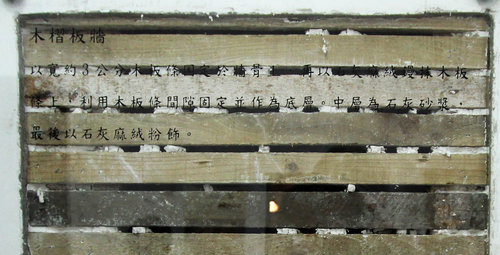 木摺板牆
以寬約3公分木板條固定於牆骨上 再以石灰麻絨塗抹木板
條上，利用木板條間隙固定並作為底層。中層為石灰砂漿，
最後以石灰麻絨粉飾。